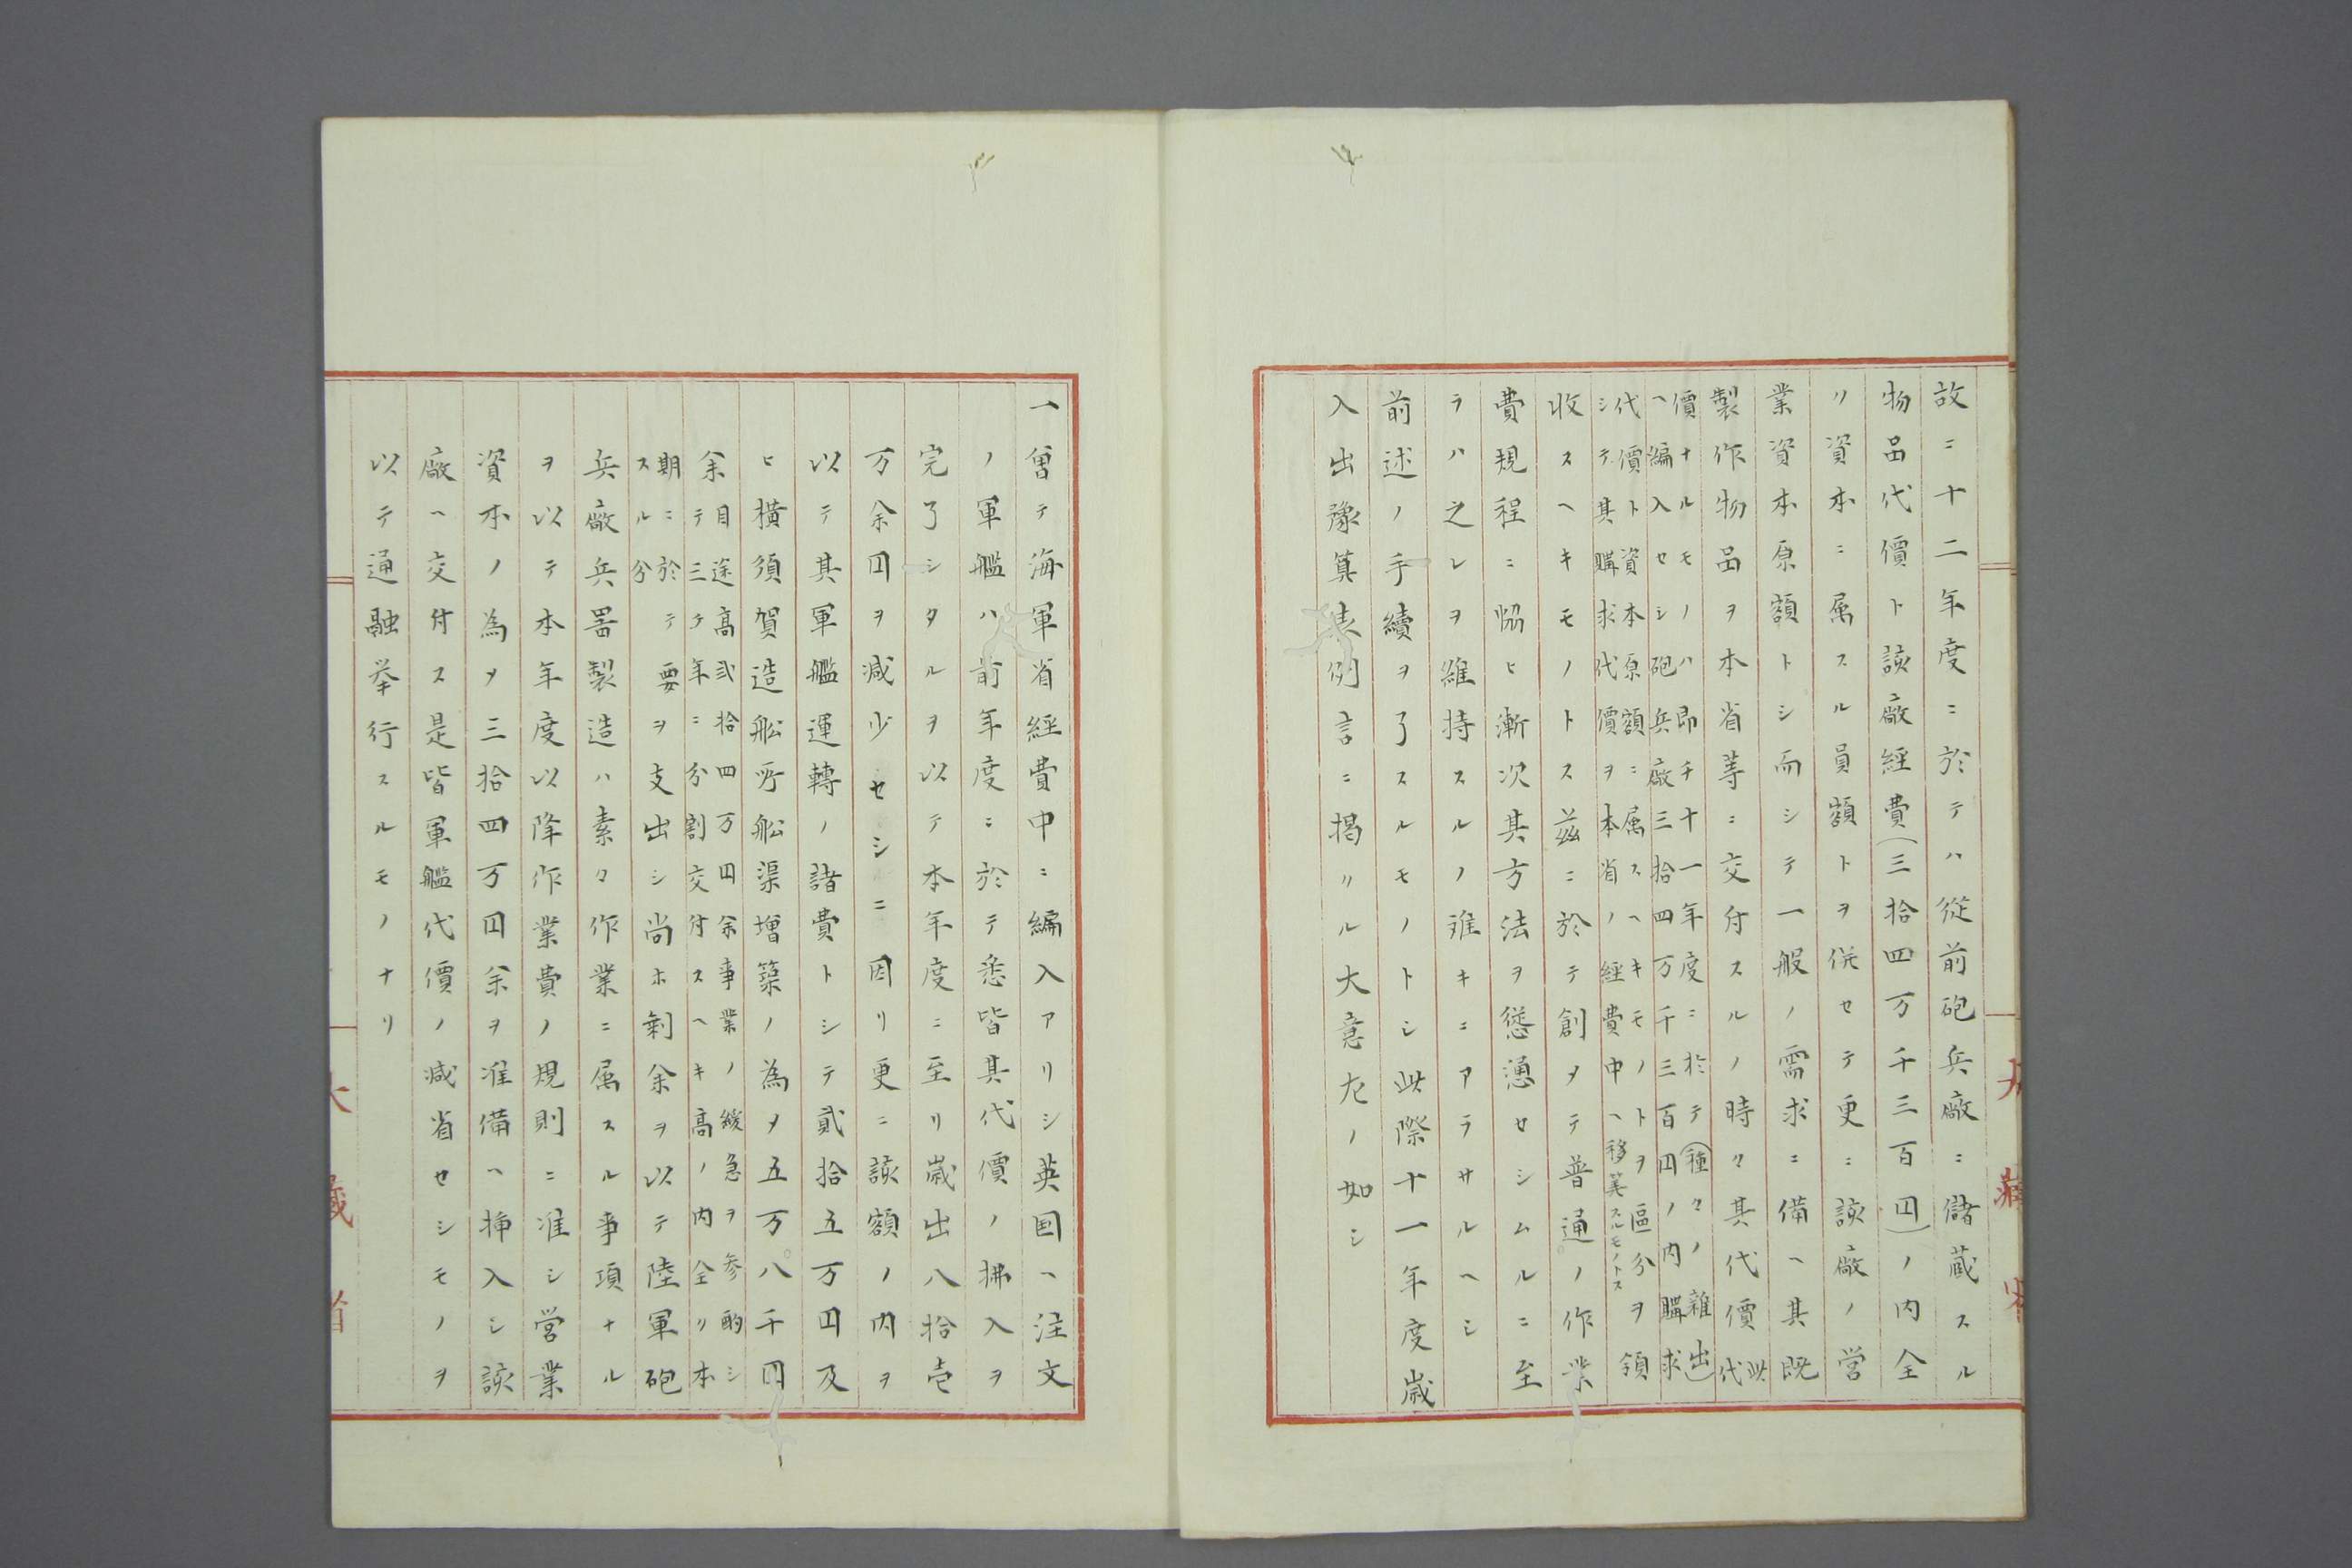 故ニ十二年度ニ於テハ從前砲兵廠ニ儲蔵スル
物品代價ト該廠経費(三拾四万千三百円)ノ内全
リ資本ニ属スル員額トヲ併セテ更ニ該廠ノ営
業資本原額トシ而シテ一般ノ需求ニ備ヘ其既
製作物品ヲ本省等ニ交付スルノ時々其代價
此
代
價ナルモノハ即チ十一年度ニ於テ(種々ノ雑出)
ヘ編入セシ砲兵廠三拾四万千三百円ノ内購求
代價ト資本原額ニ属スヘキモノトヲ區分ヲ領
シテ其購求代價ヲ本省ノ経費中ヘ移算スルモノトス
收スヘキモノトス茲ニ於テ創メテ普通ノ作業
費規程ニ恊ヒ漸次其方法ヲ慫慂セシムルニ至
ラハ之レヲ維持スルノ難キニアラサルヘシ
前述ノ手續ヲ了スルモノトシ此際十一年度歳
入出豫算表例言ニ掲クル大意左ノ如シ
一曽テ海軍省経費中ニ編入アリシ英国ヘ注文
ノ軍艦ハ前年度ニ於テ悉皆其代價ノ拂入ヲ
完了シタルヲ以テ本年度ニ至リ歳出八拾壱
万余円ヲ減少セシニ因リ更ニ該額ノ内ヲ
以テ其軍艦運轉ノ諸費トシテ貳拾五万円及
ヒ横須賀造舩所舩渠増築ノ為メ五万八千円
余
目途高弐拾四万円余事業ノ緩急ヲ参酌シ
テ三チ年ニ分割交付スヘキ高ノ内全リ本
期ニ於テ
スル分
要ヲ支出シ尚ホ剰余ヲ以テ陸軍砲
兵廠兵器製造ハ素々作業ニ属スル事項ナル
ヲ以テ本年度以降作業費ノ規則ニ准シ営業
資本ノ為メ三拾四万円余ヲ准備ヘ挿入シ該
廠ヘ交付ス是皆軍艦代價ノ減省セシモノヲ
以テ通融挙行スルモノナリ
大藏省